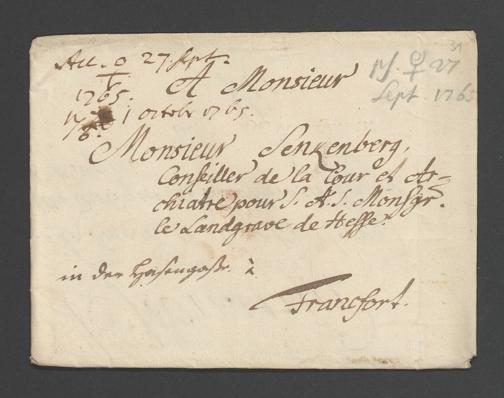 Acc. ♀ 27. Sept.
1765.
1 octobr 1765.
A Monsieur
Monsieur Senkenberg,
Conseiller de la Cour et Ar-
chiatre pour S. A. S. Monsgr.
le Landgrave de Hesse.
in der Hasengaße. à
Francfort.
31
ps. ♀ 27
Sept. 1765